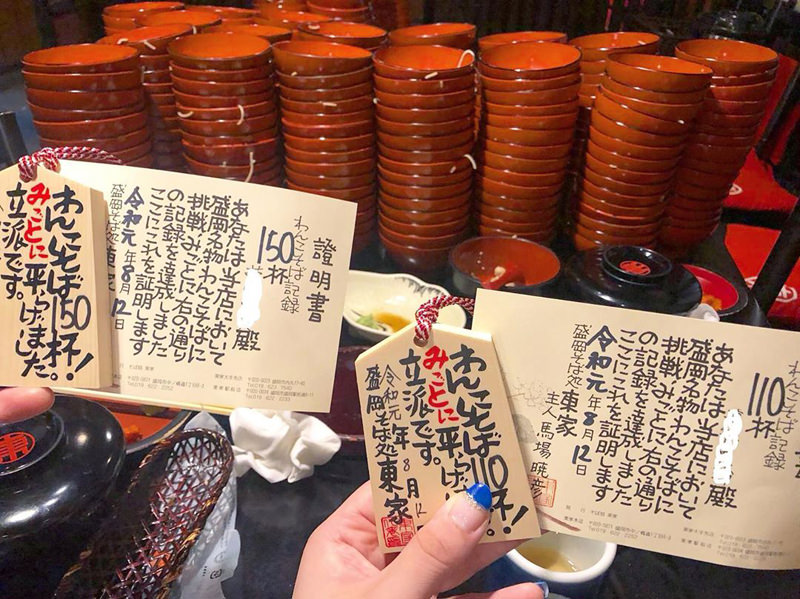 わんこそば150杯!
みごとに平らげました。
立派です。
證明書
わんこそば記録
150杯
殿
あなたは当店において
盛岡名物わんこそばに
挑戦みごとに右の通り
の記録を達成しました
ここにこれを証明します
令和元年8月12日
盛岡そば処 東家
わんこそば110杯!
みごとに平らげ
立派です。
令和元年8月12
盛岡そば処 東家
わんこそば記録
110杯
殿
あなたは当店において
盛岡名物わんこそばに
挑戦みごとに右の通り
の記録を達成しました
ここにこれを証明します
令和元年8月12日
盛岡そば処 東家
主人 馬場 暁彦
東